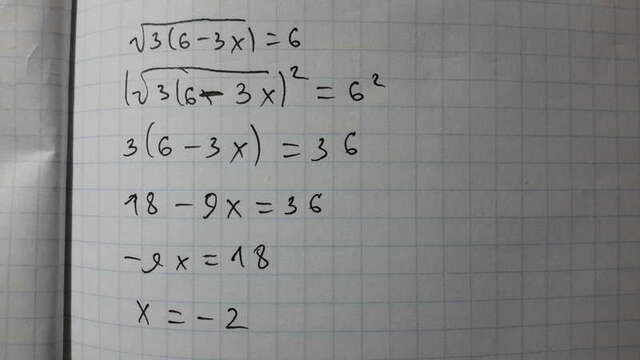 √3(6-3x) = 6
(√3(6-3x)² = 6²
3(6-3x) = 36
18-9x = 36
-9x = 18
x = -2